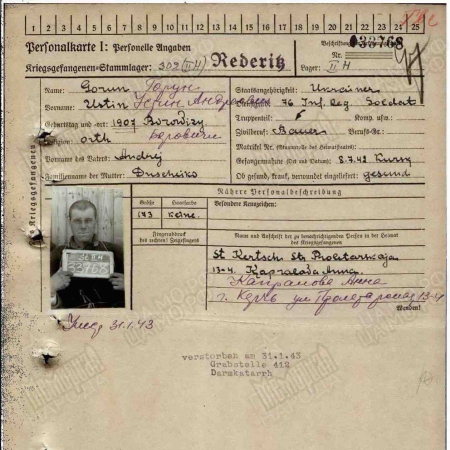 1 2 3 4 5 6 7 8 9 10 11 12 13 14 15 16 17 18 19 20 21 22 23 24 25
Personalkarte I: Personelle Angaben
Kriegsgefangenen-Stammlager: 302 (II H) Rederitz
Beschriftung der
Nr. 33768
Lager: II H
Name: Gorun Горун
Vorname: Ustin Устин Андреевич
Geburtstag und -ort: 1907 Borowizy
Religion: orth
Vorname des Vaters: Andrej
Familienname der Mutter:
Staatsangehörigkeit: Ukrainer
Dienstgrad: 76 Inf. Reg. Soldat
Truppenteil: Komp. usw.:
Zivilberuf: Bauer Berufs-Gr.:
Matrikel Nr. (Stammrolle des Heimatstaates):
Gefangennahme (Ort und Datum): 8.7.42 Kursk
Ob gesund, krank, verwundet eingeliefert: gesund
des Kriegsgefangenen
Nähere Personalbeschreibung
Größe Haarfarbe Besondere Kennzeichen:
173
Fingerabdruck
des rechten! Zeigefingers
Name und Anschrift der zu benachrichtigenden Person in der Heimat
des Kriegsgefangenen
St Kertsch Str Proletarskaja
13-4. Anna
Анна
г. Керчь ул Пролетарская 13-4
Wenden!
33768
Умер 31.1.43
verstorben am 31.1.43
Grabstelle 412
Darmkatarrh